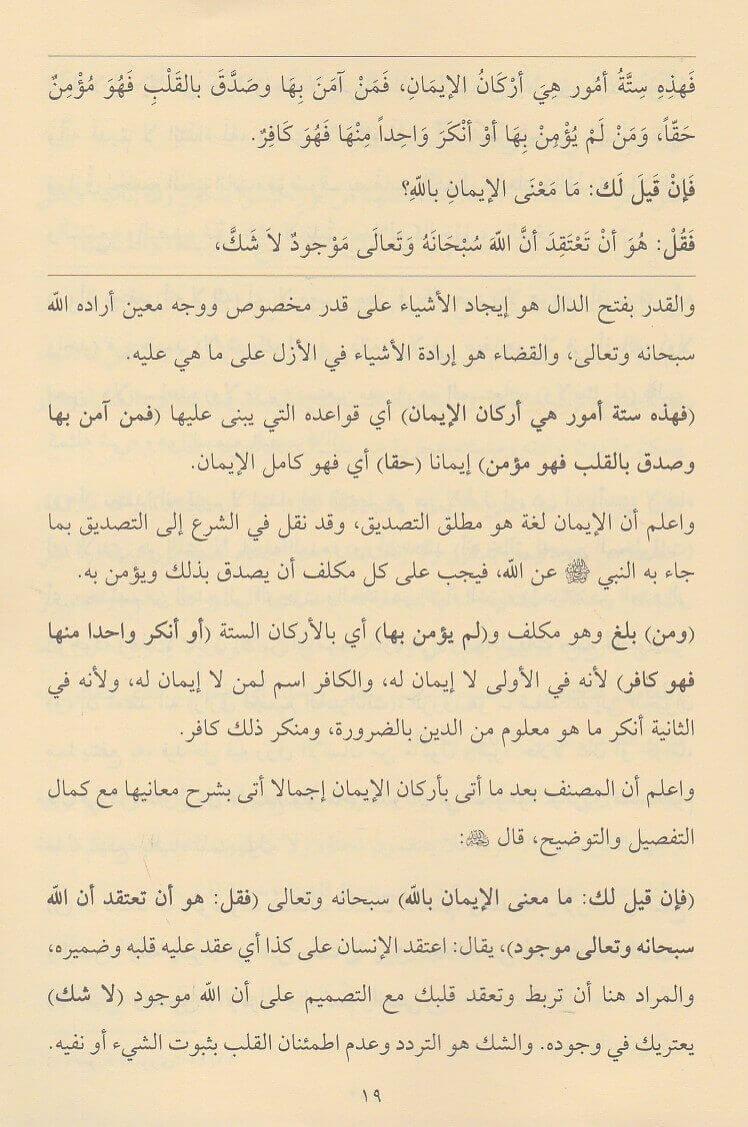 فَهذِهِ سِتَّةُ أمُور هِيَ أرْكَانُ الإيمَانِ، فَمَنْ آمَنَ بِهَا وصَدَّقَ بالقَلْبِ فَهُوَ مُؤْمِنٌ
حَقّاً، وَمَنْ لَمْ يُؤْمِنْ بِهَا أوْ أنْكَرَ وَاحِداً مِنْهَا فَهُوَ كَافِرٌ.
فَإنْ قيلَ لَك: مَا مَعْنَى الإيمَانِ باللهِ؟
فَقُلْ: هُوَ أنْ تَعْتَقِدَ أنَّ اللهَ سُبْحَانَهُ وَتَعَالَى مَوْجودٌ لاَ شَكَّ،
والقدر بفتح الدال هو إيجاد الأشياء على قدر مخصوص ووجه معين أراده الله
سبحانه وتعالى، والقضاء هو إرادة الأشياء في الأزل على ما هي عليه.
(فهذه ستة أمور هي أركان الإيمان) أي قواعده التي يبنى عليها (فمن آمن بها
وصدق بالقلب فهو مؤمن) إيمانا (حقا) أي فهو كامل الإيمان.
واعلم أن الإيمان لغة هو مطلق التصديق، وقد نقل في الشرع إلى التصديق بما
جاء به النبي ﷺ عن الله، فيجب على كل مكلف أن يصدق بذلك ويؤمن به.
(ومن) بلغ وهو مكلف و(لم يؤمن بها) أي بالأركان الستة (أو أنكر واحدا منها
فهو كافر) لأنه في الأولى لا إيمان له، والكافر اسم لمن لا إيمان له، ولأنه في
الثانية أنكر ما هو معلوم من الدين بالضرورة، ومنكر ذلك كافر.
واعلم أن المصنف بعد ما أتى بأركان الإيمان إجمالا أتى بشرح معانيها مع كمال
التفصيل والتوضيح، قال :
(فإن قيل لك: ما معنى الإيمان بالله) سبحانه وتعالى (فقل: هو أن تعتقد أن الله
سبحانه وتعالى موجود)، يقال: اعتقد الإنسان على كذا أي عقد عليه قلبه وضميره،
والمراد هنا أن تربط وتعقد قلبك مع التصميم على أن الله موجود (لا شك)
يعتريك في وجوده. والشك هو التردد وعدم اطمئنان القلب بثبوت الشيء أو نفيه.
١٩